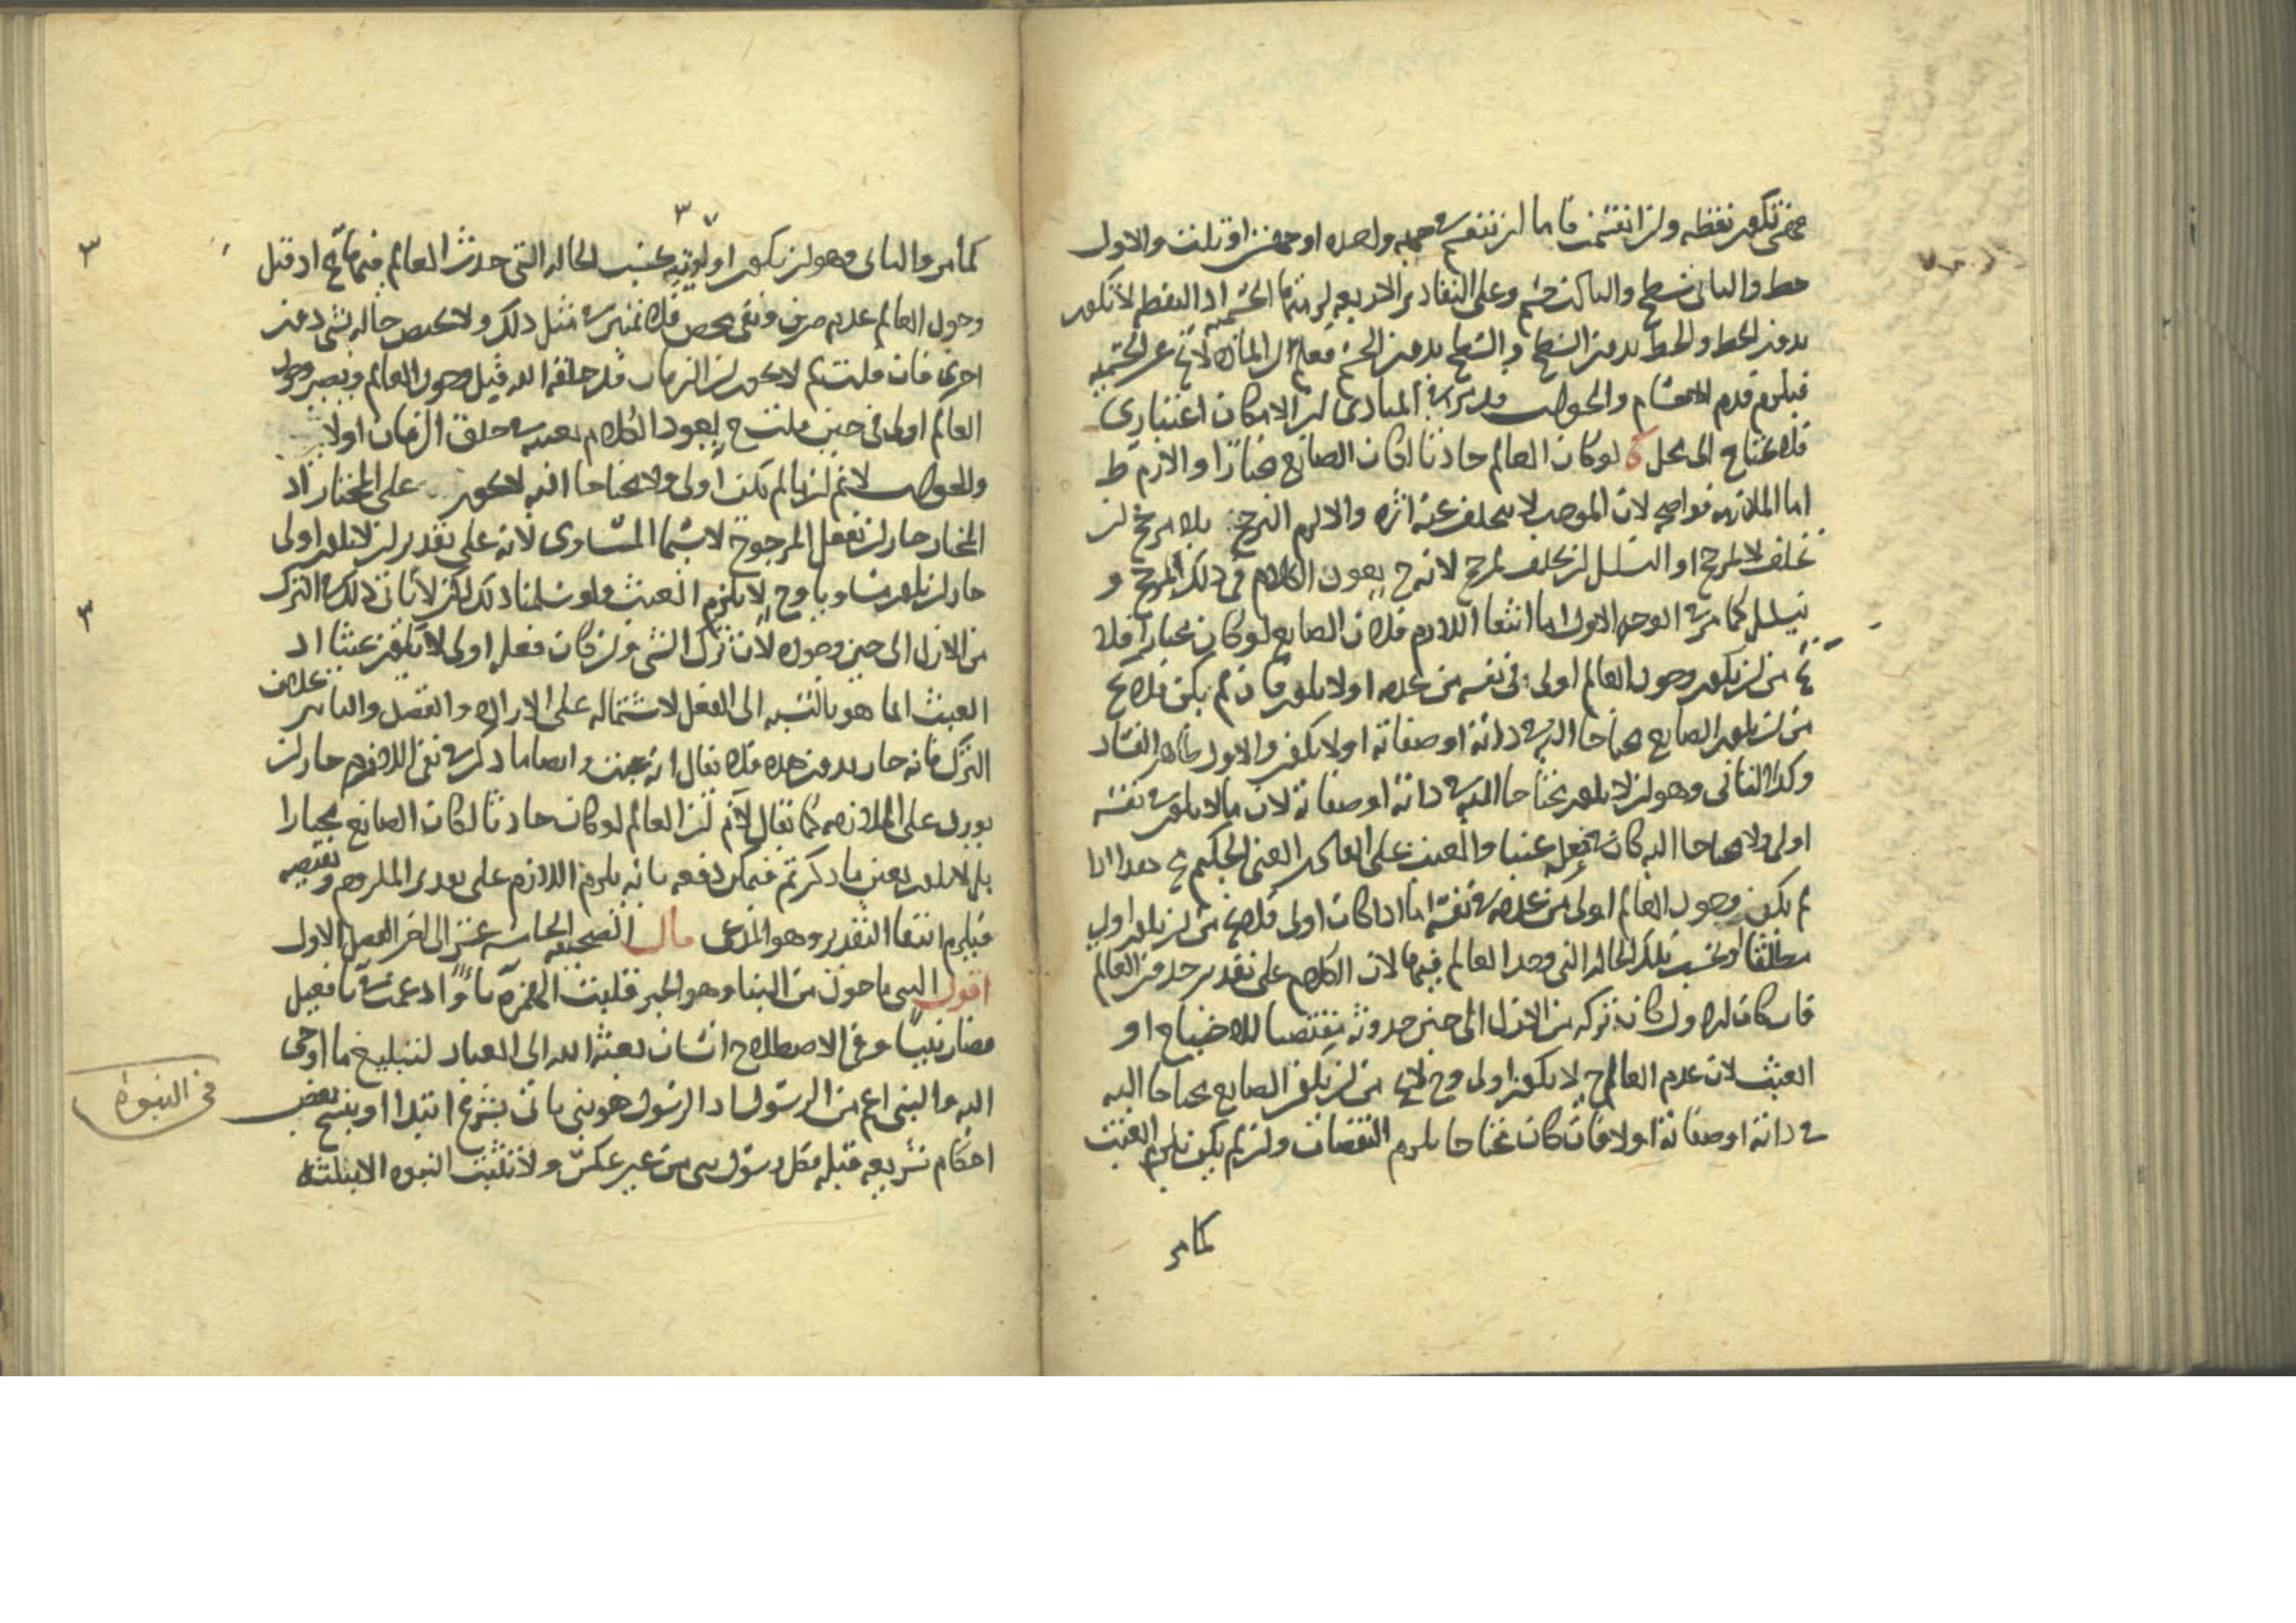 فهي تكون نقطه ولن انقسمت فاما ان تنقسم في جهه واحده او جهتين او ثلث والاول
خط والثاني سطح والثالث جسم وعلى التقادير الاربعه لزمتها الجسميه اذ النقطه لا تكون
بدون الخط والخط بدون السطح والسطح بدون الجسم فعلم ان الماده لا تخ عن الجسميه
فيلزم قدم الاجسام والجواب قد مر في المبادى ان الامكان اعتبارى
فلا يحتاج الى محل لو كان العالم حادثا لكان الصانع مختارا والازم ط
اما الملازمه فواضحه لان الموجب لا يتخلف عنه اثره والا لزم الترجيح بلا مرجح ان
تخلف لا لمرجح او التسلسل ان تخلف لمرجح لانه ح يعود الكلام في ذلك المرجح و
يتسلسل كما مر في الوجه الاول اما انتفا اللازم فلان الصانع لو كان مختارا فلا
يخ من ان يكون وجود العالم اولى في نفسه من عدمه او لا يكون فان لم يكن فلا يخ
من ان يكون الصانع محتاجا اليه في ذاته او صفاته او لا يكون والاول ظاهر الفساد
وكذا الثاني وهو ان لا يكون محتاجا اليه في ذاته او صفاته لان ما لا يكون في نفسه
اولى ولا محتاجا اليه كان فعله عبثا والعبث على الفاعل الغنى الحكيم مح هذا اذا
لم يكن وجود العالم اولى من عدمه في نفسه اما اذا كان اولى فلا يخ من ان يكون اولى
مطلقا او بحسب تلك الحاله التي وجد العالم فيها لان الكلام على تقدير حدوث العالم
فان كان الاول كان تركه من الازل الى حين حدوثه مقتضيا للاحتياج او
العبث لان عدم العالم ح لا يكون اولى وح لا يخ من ان يكون الصانع محتاجا اليه
في ذاته او صفاته اولا فان كان محتاجا يلزم النقصان ولن لم يكن يلزم العبث
كما مر
٣٧
كما مر والثاني وهو ان يكون اولويته بحسب الحاله التي حدث العالم فيها مح اذ قبل
وجود العالم عدم صرف ونفى محض فلا تميز في مثل ذلك ولا يختص حاله بشى دون
اخرى فان قلت لم لا يكون ان الزمان قد خلقه الله قبل وجود العالم ويصير وجود
العالم اولى في حين قلت ح يعود الكلام بعينه في خلق الزمان اولا
والجواب لا نم ان ما لم يكن اولى ولا محتاجا اليه لا يكون على المختار اذ
المختار جاز ان يفعل المرجوح لا سيما المساوى لانه على تقدير ان لا يكون اولى
جاز ان يكون مساويا وح لا يلزم العبث ولو سلمنا ذلك لكن لا يتاتى ذلك في الترك
من الازل الى حين وجوده لان ترك الشى ولن كان فعله اولى لا يكون عبثا اذ
العبث انما هو بالنسبه الى الفعل لاشتماله على الاراده والقصد والتاثير بخلاف
الترك فانه جاز بدون هذه فلا يقال انه عبث وايضا ما ذكر في نفى اللازم جاز ان
يورد على الملازمه كما يقال لا نم ان العالم لو كان حادثا لكان الصانع مختارا
بل لا يكون بعين ما ذكرتم فيمكن دفعه بانه يلزم اللازم على تقدير الملزوم ونقيضه
فيلزم انتفا التقدير وهو المدعى قال الصحيفه الخامسه عشر الى اخر الفصل الاول
اقول النبى ماخوذ من النبا وهو الخبر فقلبت الهمزه ياء وادغمت في يا فعيل
فصار نبيا وفى الاصطلاح انسان بعثه الله الى العباد لتبليغ ما اوحى
اليه والنبى اعم من الرسول اذ الرسول هو نبى ياتى بشرع ابتداء او بنسخ بعض
احكام شريعه قبله فكل رسول نبى من غير عكس ولا تثبت النبوه الا بثلثه
في النبوة
٣
٣